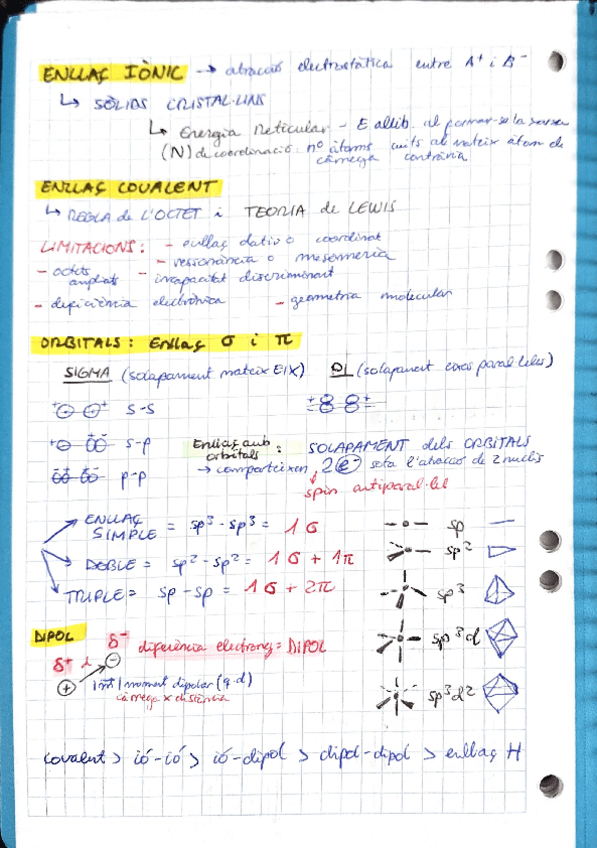 ENLLAÇ IÒNIC → atracció electrostàtica entre A⁺ i B⁻
↳ SÒLIDS CRISTAL·LINS
↳ Energia Reticular - E allib. al formar-se la xarxa
(N) de coordinació: nº àtoms units al mateix àtom de
càrrega contrària
ENLLAÇ COVALENT
↳ REGLA de L'OCTET i TEORIA de LEWIS
LIMITACIONS: - enllaç datiu o coordinat
- ressonància o mesomeria
- octets ampliats - incapacitat discriminant
- deficiència electrònica - geometria molecular
ORBITALS: Enllaç σ i π
SIGMA (solapament mateix EIX) PI (solapament eixos paral·leles)
s-s
s-p Enllaç amb orbitals: SOLAPAMENT dels ORBITALS
→ comparteixen 2 e⁻ sota l'atracció de 2 nuclis
p-p
spin antiparal·lel
ENLLAÇ SIMPLE = sp³ - sp³ = 1 σ
DOBLE = sp² - sp² = 1 σ + 1π
TRIPLE = sp - sp = 1 σ + 2π
sp
sp²
sp³
sp³d
sp³d²
DIPOL
δ⁻ diferència electroneg = DIPOL
δ⁺ d
moment dipolar (q·d)
càrrega x distància
covalent > ió-ió > ió-dipol > dipol-dipol > enllaç H